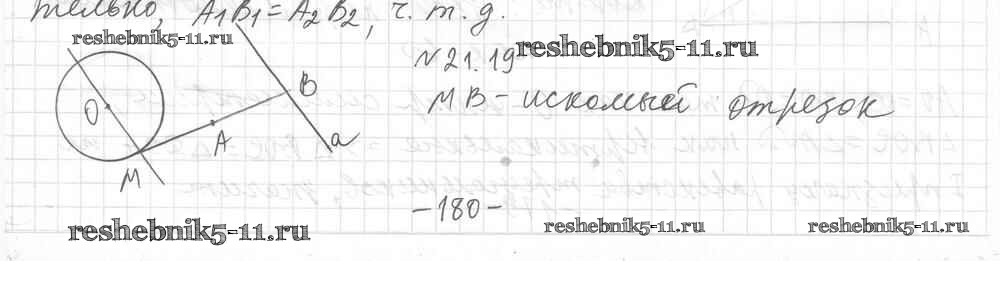 тельно, A₁B₁ = A₂B₂, ч. т. д.
reshebnik5-11.ru
reshebnik5-11.ru
N 21.19
MB - искомый отрезок
O
B
A
a
M
-180-
reshebnik5-11.ru
reshebnik5-11.ru
reshebnik5-11.ru